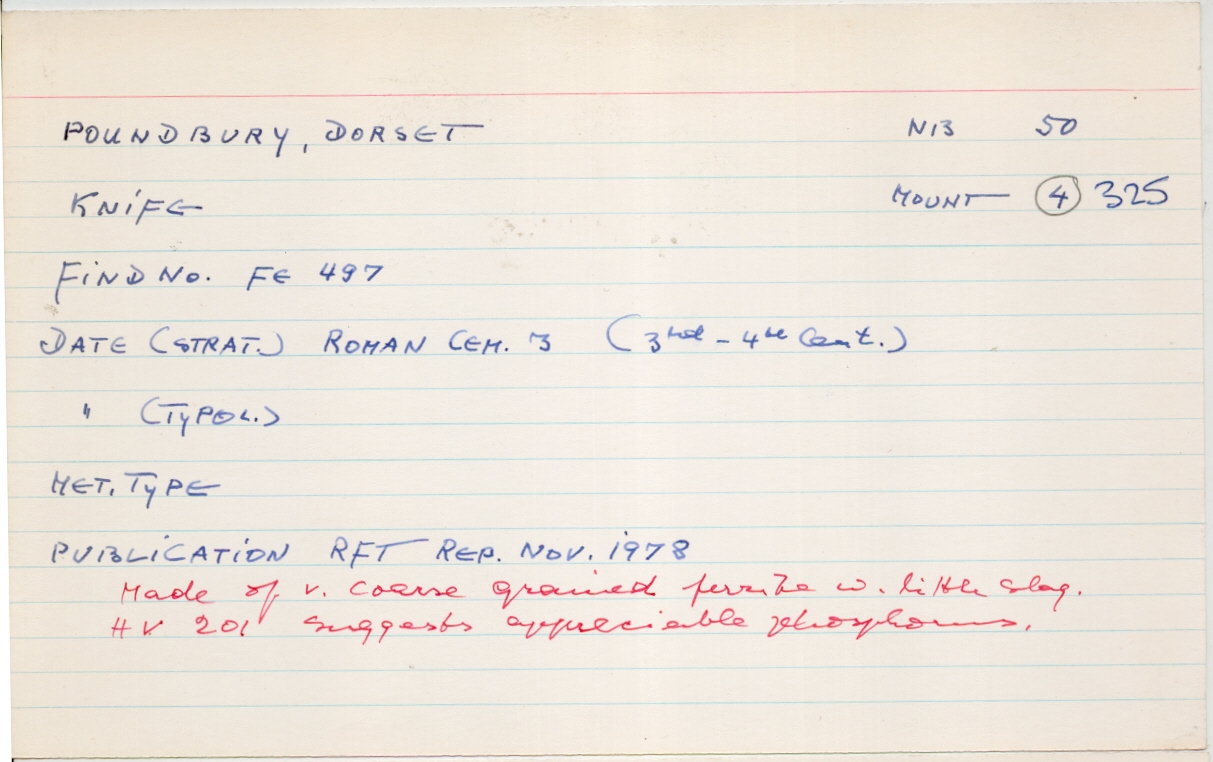 POUNDBURY, DORSET NB 50
KNIFE MOUNT 4 325
FIND NO. FE 497
DATE (STRAT.) ROMAN CEM. 3 (3rd - 4th Cent.)
" (TYPOL.)
MET. TYPE
PUBLICATION RFT REP. NOV. 1978
Made of v. coarse grained ferrite w. little slag.
HV 201 suggests appreciable phosphorus.